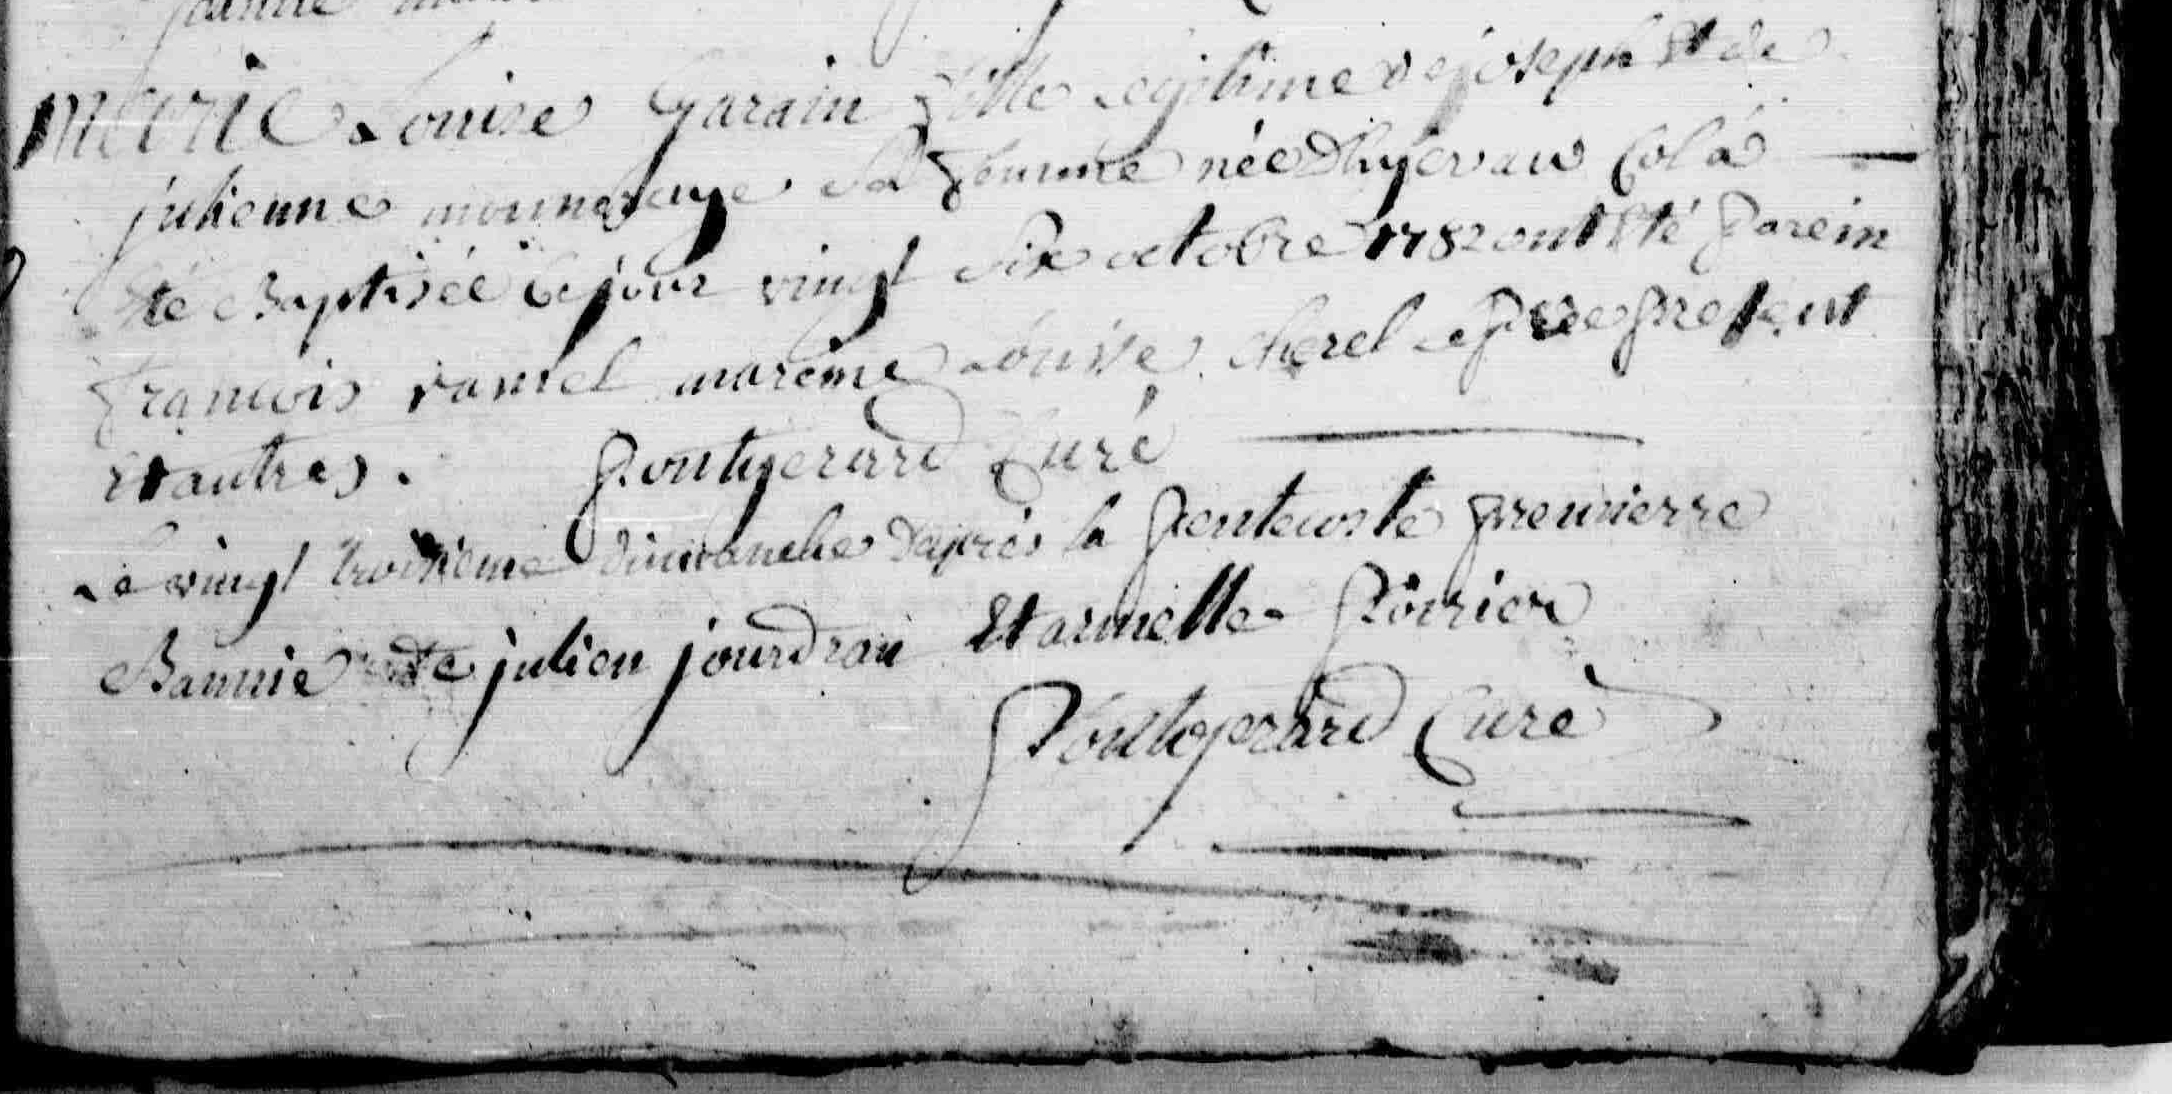 jeanne
Marie Louise Garain fille legitime de joseph Et de
julienne sa femme née D'hyer au Cola
Eté Baptisée Ce jour vingt Six octobre 1782 ont Eté Parein
francois ramel mareine Louise cherel Le Pere Present
Et autres. Pontgerard Curé
Le vingt troisieme dimanche D'après la Pentecoste Premierre
Bannie de julien jourdran Et armelle Poirier
Pontgerard Curé